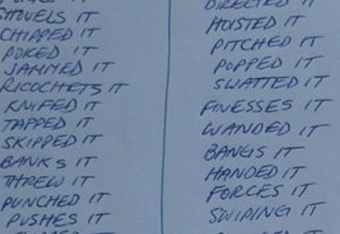 SHOVELS IT
CHIPPED IT
POKED IT
JAMMED IT
RICOCHETS IT
KNIFED IT
TAPPED IT
SKIPPED IT
BANKS IT
THREW IT
PUNCHED IT
PUSHES IT
DIRECTED IT
HOISTED IT
PITCHED IT
POPPED IT
SWATTED IT
FINESSES IT
WANDED IT
BANGS IT
HANDED IT
FORCES IT
SWIPING IT